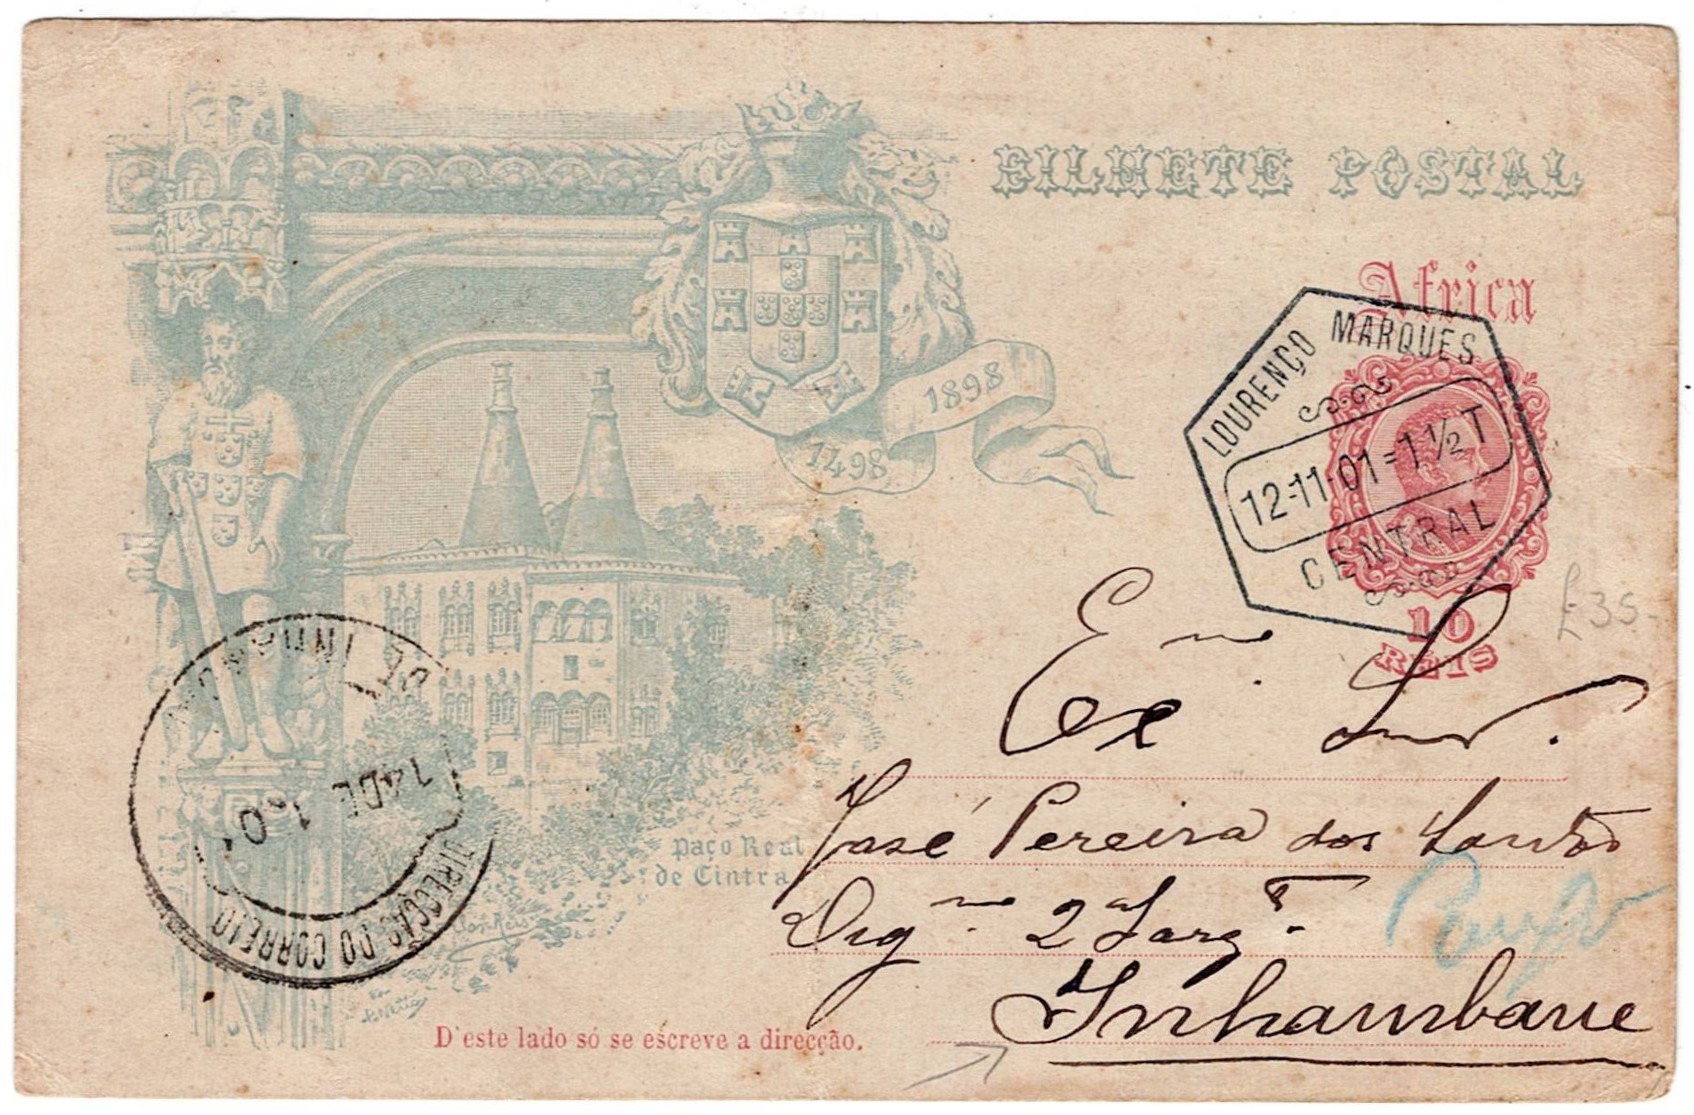 BILHETE POSTAL
Africa
1898
1498
LOURENÇO MARQUES
12-11-01=1½T
CENTRAL
10
RÉIS
£35-
Exmo Snr.
José Pereira dos Santos
Digmo 2º Sargto
Inhambane
Paço Real
de Cintra
14 DE 1901
DIRECÇÃO DO CORREIO
D'este lado só se escreve a direcção.